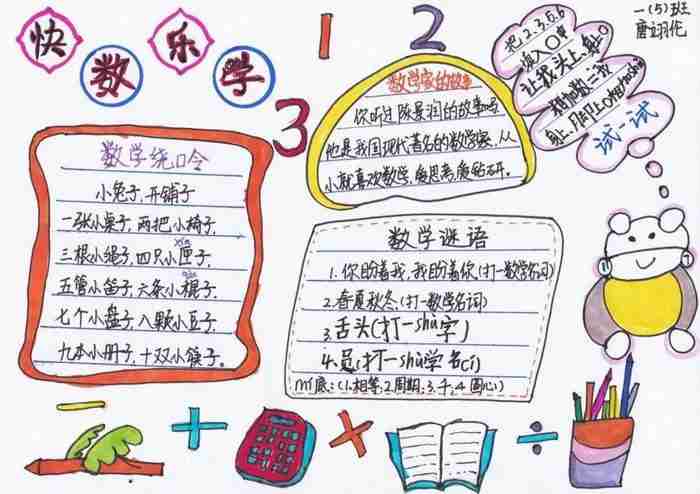 快乐
数学
1
2
3
一(5)班
唐翊伦
数学家的故事
你听过陈景润的故事吗
他是我国现代著名的数学家,从
小就喜欢数学,爱思考,爱钻研.
填入〇中
让我头上,身上
试一试
数学绕口令
小兔子,开铺子
一张小桌子,两把小椅子,
三根小绳子,四只小匣子,
五管小笛子,六条小棍子,
七个小盘子,八颗小豆子,
九本小册子,十双小筷子。
数学谜语
1.你盼着我,我盼着你(打一数学名词)
2.春夏秋冬(打一数学名词)
3.舌头(打一shù字)
4.员(打一shù学名cí)
(1.相等,2.周期,3.千,4.圆心)
− + × ÷